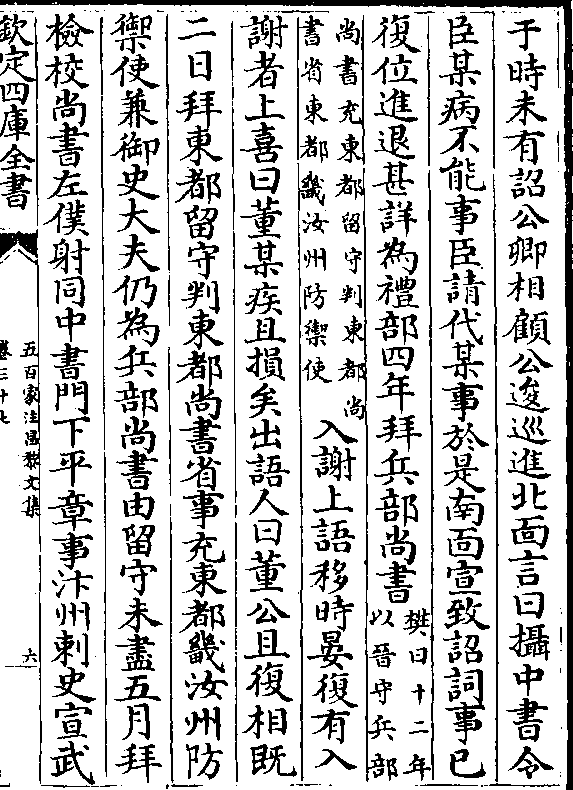 于時未有詔公卿相顧公逡巡進北面言曰攝中書令
臣某病不能事臣請代某事於是南面宣致詔詞事已
復位進退甚詳為禮部四年拜兵部尚書
樊曰十二年
以晉守兵部
尚書充東都留守判東都尚
書省東都畿汝州防禦使
入謝上語移時晏復有入
謝者上喜曰董某疾且損矣出語人曰董公且復相既
二日拜東都留守判東都尚書省事充東都畿汝州防
禦使兼御史大夫仍為兵部尚書由留守未盡五月拜
檢校尚書左僕射同中書門下平章事汴州刺史宣武
欽定四庫全書
五百家注昌黎文集
卷三十七
六